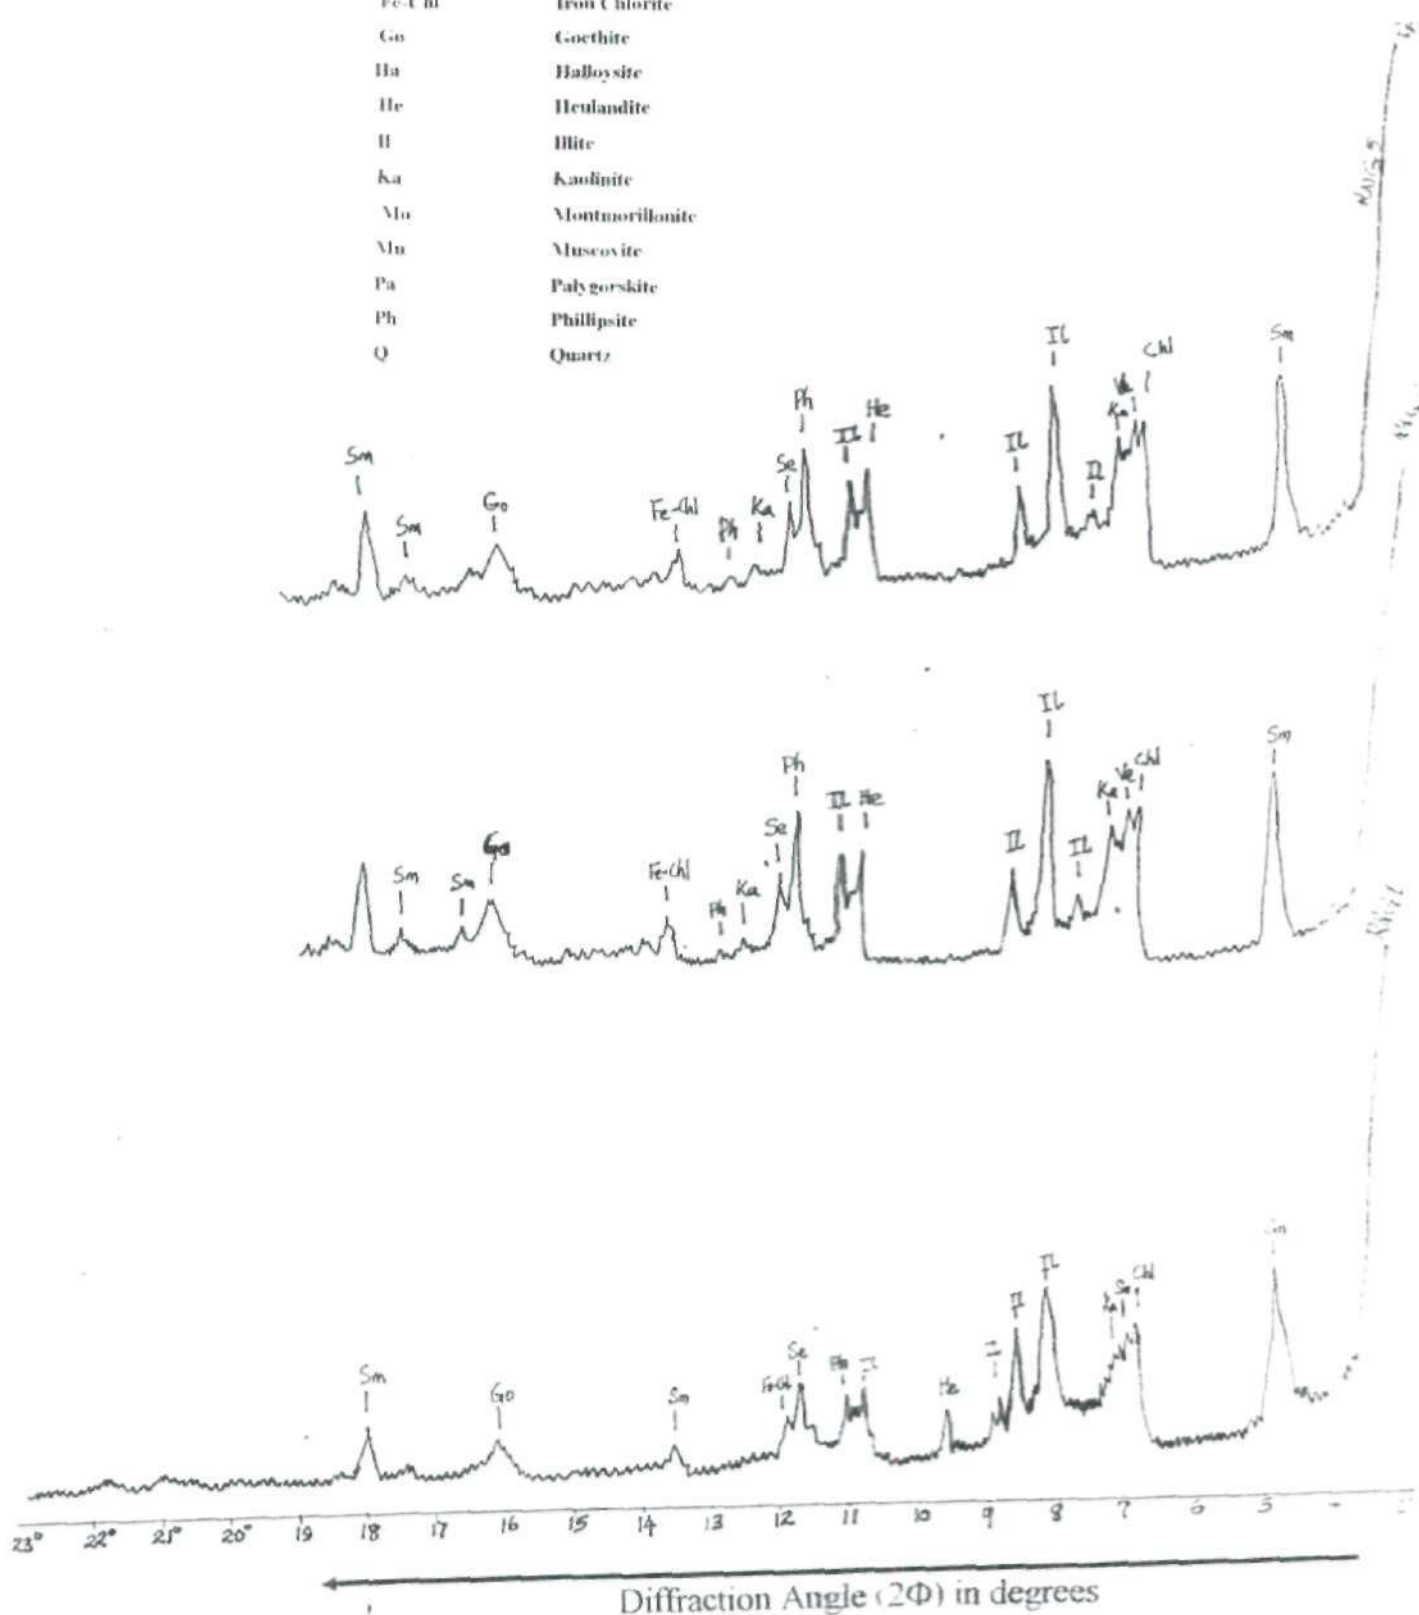 Fe-Chl Iron Chlorite
Go Goethite
Ha Halloysite
He Heulandite
Il Illite
Ka Kaolinite
Mo Montmorillonite
Mu Muscovite
Pa Palygorskite
Ph Phillipsite
Q Quartz
Sm Sm Go Fe-Chl Ph Ka Se Ph IL He IL IL IL Ka Chl Sm
Sm Sm Go Fe-Chl Ph Ka Se Ph IL He IL IL IL Ka Ve Chl Sm
Sm Go Sm Fe-Chl Se He IL IL Chl Sm
23° 22° 21° 20° 19 18 17 16 15 14 13 12 11 10 9 8 7 6 5
Diffraction Angle (2Φ) in degrees